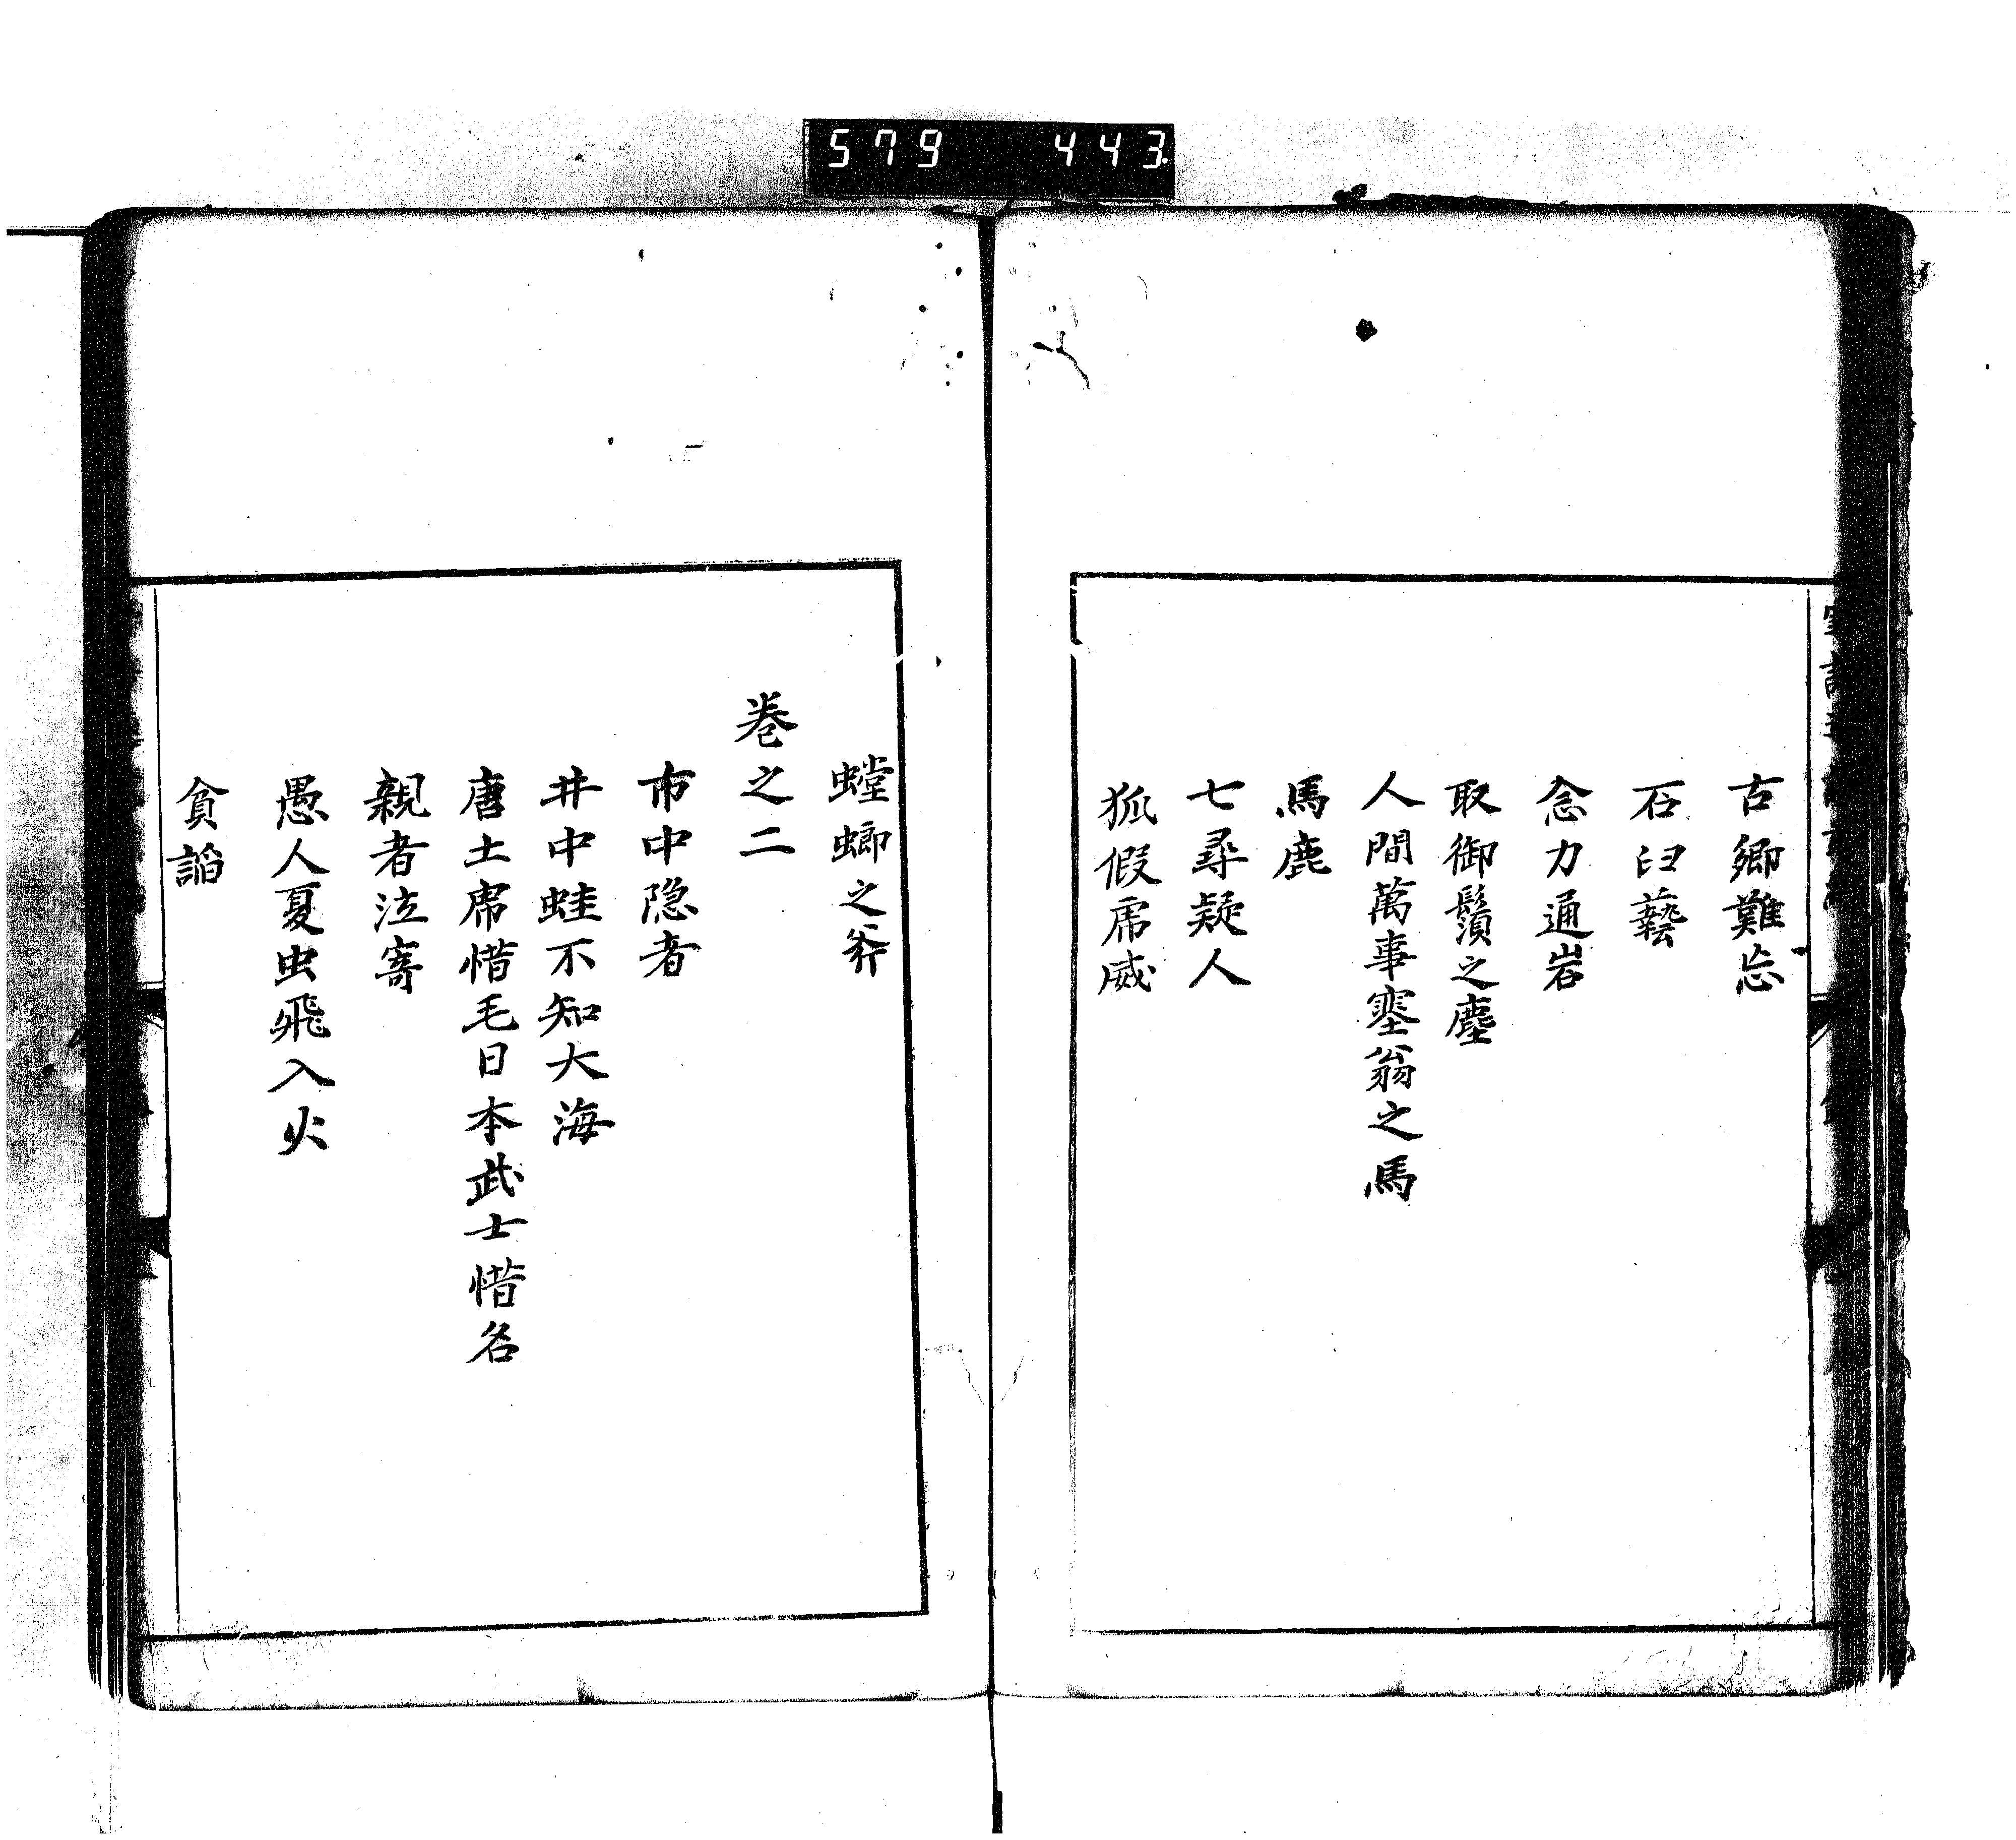 579 443
古郷難忘
石臼藝
念力通岩
取御鬚之塵
人間萬事塞翁之馬
馬鹿
七尋疑人
狐假虎威
螳螂之斧
巻之二
市中隐者
井中蛙不知大海
唐土虎惜毛日本武士惜名
親者泣寄
愚人夏虫飛入火
貪諂